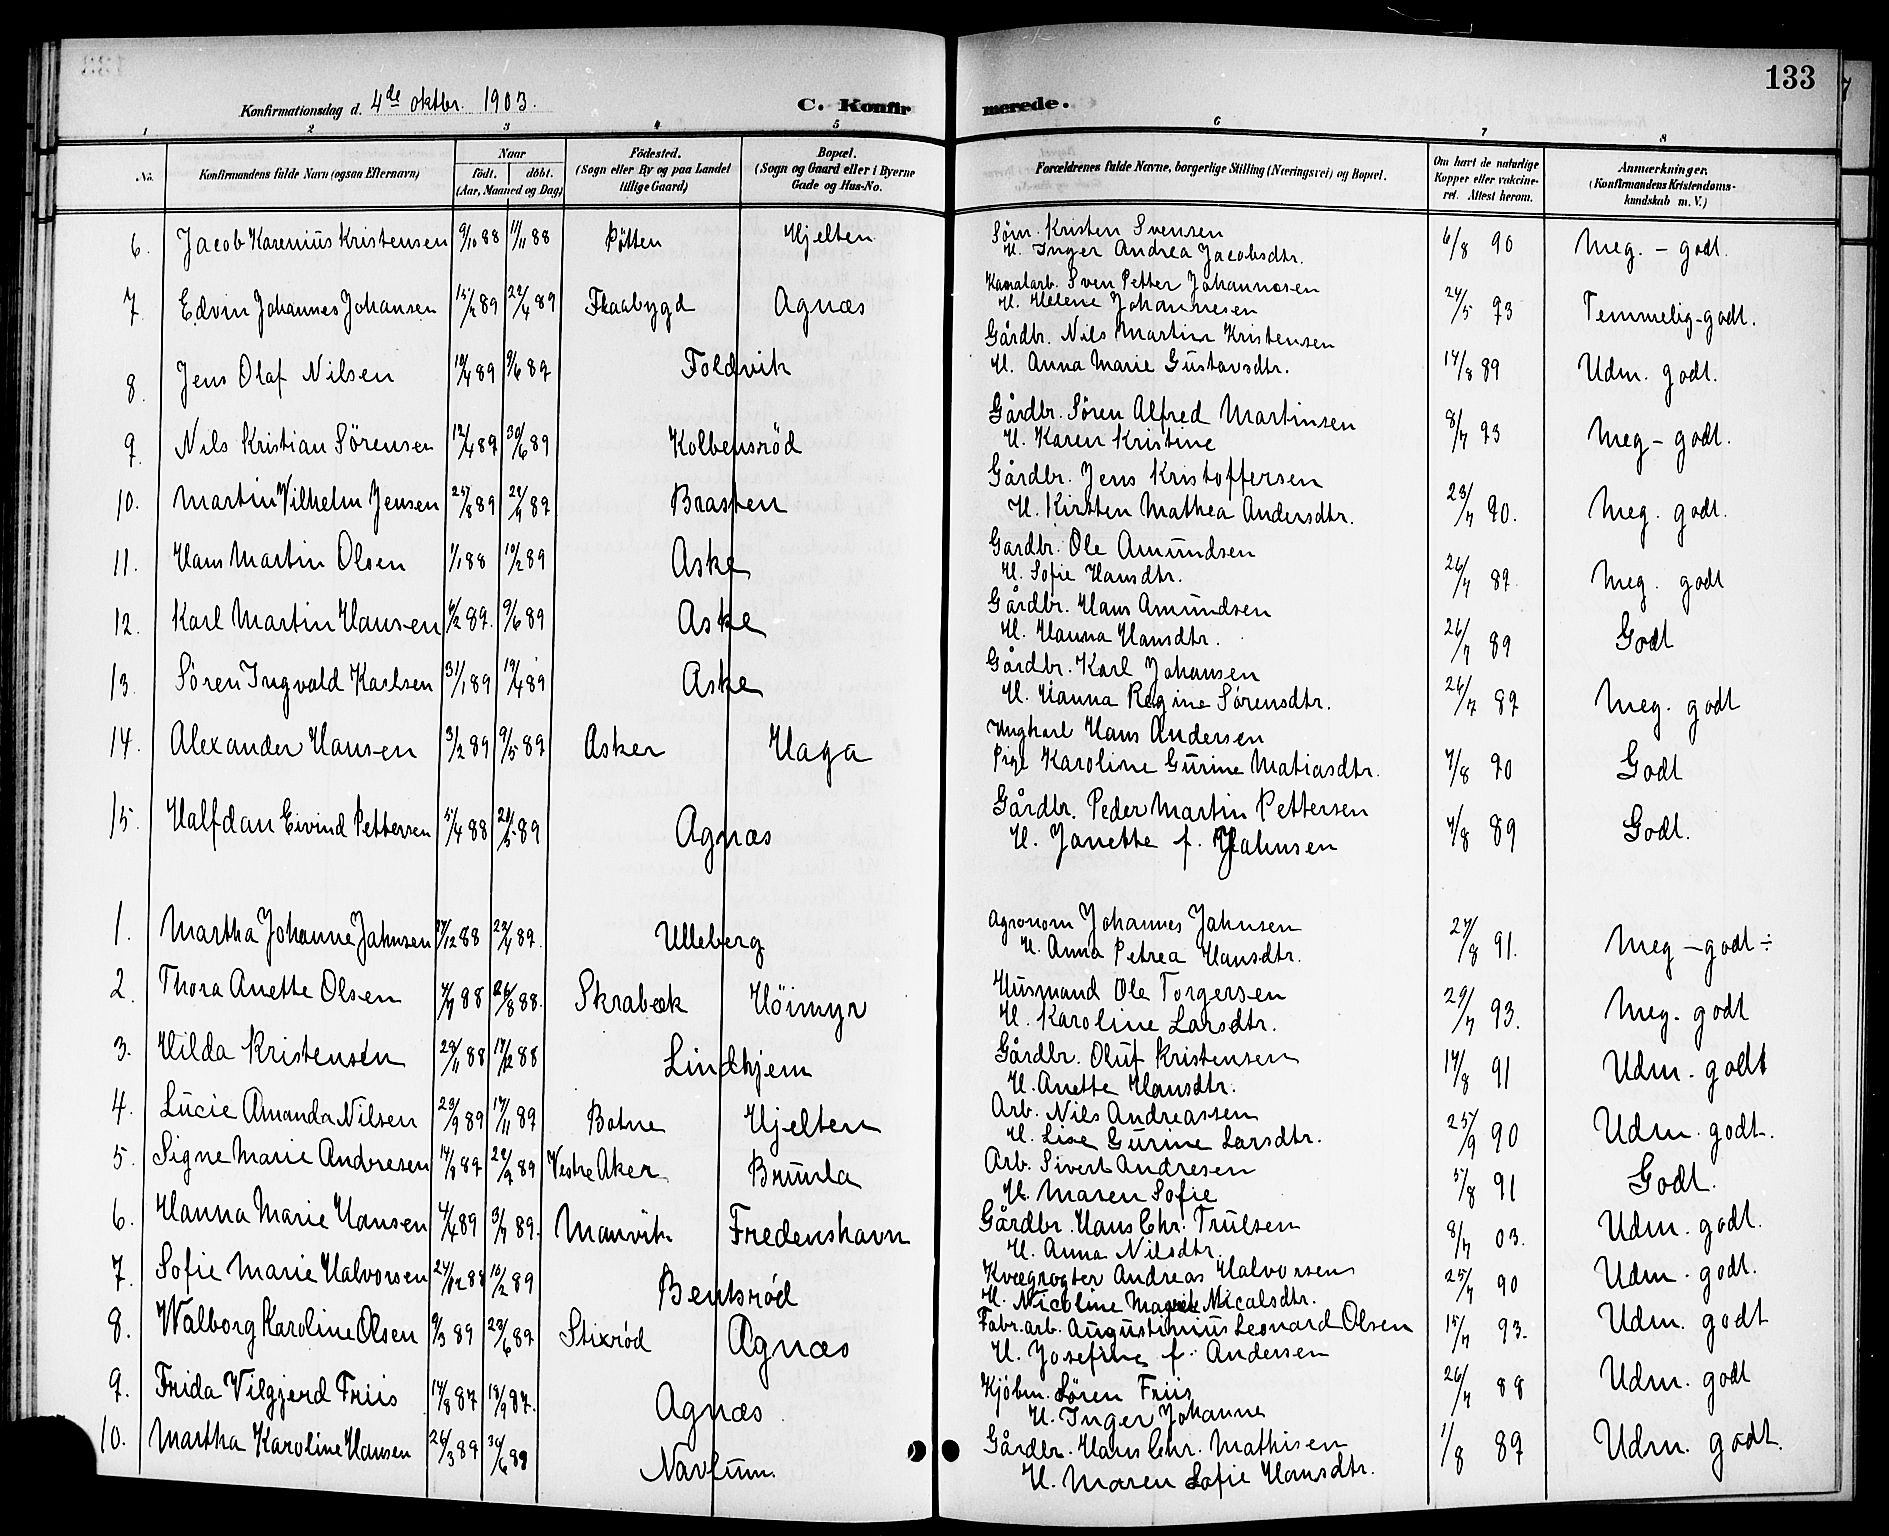 133
Konfirmationsdag d. 4de oktbr. 1903.
C. Konfirmerede.
1 2 3 4 5 6 7 8
No. Konfirmandens fulde Navn (ogsaa Efternavn) Naar födt. döbt. (Aar, Maaned og Dag) Födested. (Sogn eller By og paa Landet tillige Gaard) Bopæl. (Sogn og Gaard eller i Byerne Gade og Hus-No. Forældrenes fulde Navne, borgerlige Stilling (Næringsvei) og Bopæl. Om havt de naturlige Kopper eller vakcineret. Attest herom. Anmærkninger. (Konfirmandens Kristendomskundskab m. V.)
6. Jacob Karenius Kristensen 9/10 88 11/11 88 Pötten Hjelten Söm. Kristen Svensen
H. Inger Andrea Jacobsdtr. 6/8 90 Meg. - godt.
7. Edvin Johannes Johansen 15/2 89 22/4 89 Skaabygd Agnæs Kanalarb. Sven Petter Johannesen
H. Helene Johannesen 24/5 93 Temmelig-godt.
8. Jens Olaf Nilsen 10/4 89 9/6 89 Foldvik Gårdbr. Nils Martin Kristensen
H. Anna Marie Gustavsdtr. 14/8 89 Udm. godt.
9. Nils Kristian Sörensen 12/4 89 30/6 89 Kolbensröd Gårdbr. Sören Alfred Martinsen
H. Karen Kristine 8/7 93 Meg - godt.
10. Martin Vilhelm Jensen 89 89 Braaten Gårdbr. Jens Kristoffersen
H. Kirsten Mathea Andersdtr. 23/7 90. Meg. godt.
11. Hans Martin Olsen 1/1 88 10/2 89 Aske Gardbr. Ole Amundsen
H. Sofie Hansdtr. 26/7 89. Meg. godt
12. Karl Martin Hansen 89. 9/6 89 Aske Gårdbr. Hans Amundsen
H. Hanna Hansdtr. 26/7 89 Godt
13. Sören Ingvald Karlsen 31/1 89 19/4 89 Aske Gårdbr. Karl Johansen
H. Hanna Regine Sörensdtr. 26/7 89 Meg. godt
14. Alexander Hansen 3/2 89 9/5 89 Asker Haga Ungkarl Hans Andersen
Pige Karoline Gurine Matiasdtr. 7/8 90 Godt
15. Halfdan Eivind Pettersen 5/4 88 89 Agnæs Gårdbr. Peder Martin Pettersen
H. Janette f. Jahnsen 7/8 89 Godt.
1. Martha Johanne Jahnsen 17/12 88 22/4 89. Ulleberg Agronom Johannes Jahnsen
H. Anna Petrea Hansdtr. 27/8 91. Meg - godt ÷
2. Thora Anette Olsen 88 26/8 88. Skrabæk Höimyr Husmand Ole Torgersen
H. Karoline Larsdtr. 29/7 93. Meg. godt
3. Hilda Kristensen 88 88 Lindhjem Gårdbr. Oluf Kristensen
H. Anette Hansdtr. 14/8 91 Udm. godt
4. Lucie Amanda Nilsen 29/9 89 17/11 89 Botne Hjelten Arb. Nils Andreassen
H. Lise Gurine Larsdtr. 25/9 90 Udm. godt.
5. Signe Marie Andresen 89 22/9 89 Vestre Aker Brunla Arb. Sivert Andresen
H. Maren Sofie 5/8 91 Godt.
6. Hanna Marie Hansen 4/4 89 3/7 89. Manvik Fredenshavn Gårdbr. Hans Chr. Trulsen
H. Anna Nilsdtr. 8/7 03. Udm. godt.
7. Sofie Marie Halvorsen 88 10/2 89 Bentsröd Kvægrögter Andreas Halvorsen
H. Nicoline Micalsdtr. 25/7 90 Udm. godt.
8. Walborg Karoline Olsen 9/3 89 23/6 89 Stixröd Agnæs Fabr.arb. Augustinius Leonard Olsen
H. Josefine f. Andersen 15/7 93. Udm. godt
9. Frida Vilgjerd Friis 14/8 87 18/9 87. Agnæs Kjöbm. Sören Friis
H. Inger Johanne 26/7 88 Udm. godt
10. Martha Karoline Hansen 26/3 89 30/6 89 Navfum. Gårdbr. Hans Chr. Mathisen
H. Maren Sofie Hansdtr. 1/8 89 Udm. godt.